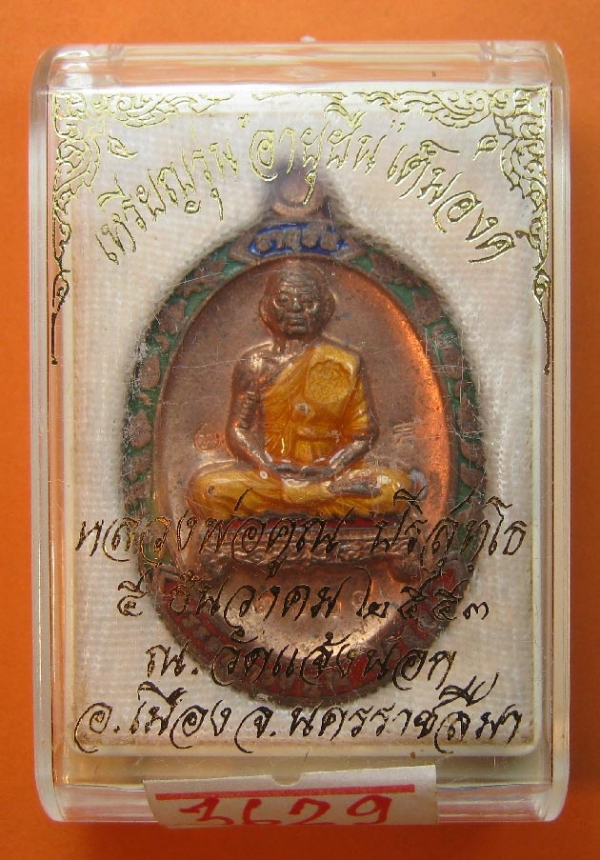 เหรียญรุ่น อายุยืน เต็มองค์
อายุยืน
หลวงพ่อคูณ ปริสุทฺโธ
๕ ธันวาคม ๒๕๕๓
ณ. วัดแจ้งนอก
อ.เมือง จ.นครราชสีมา
3629